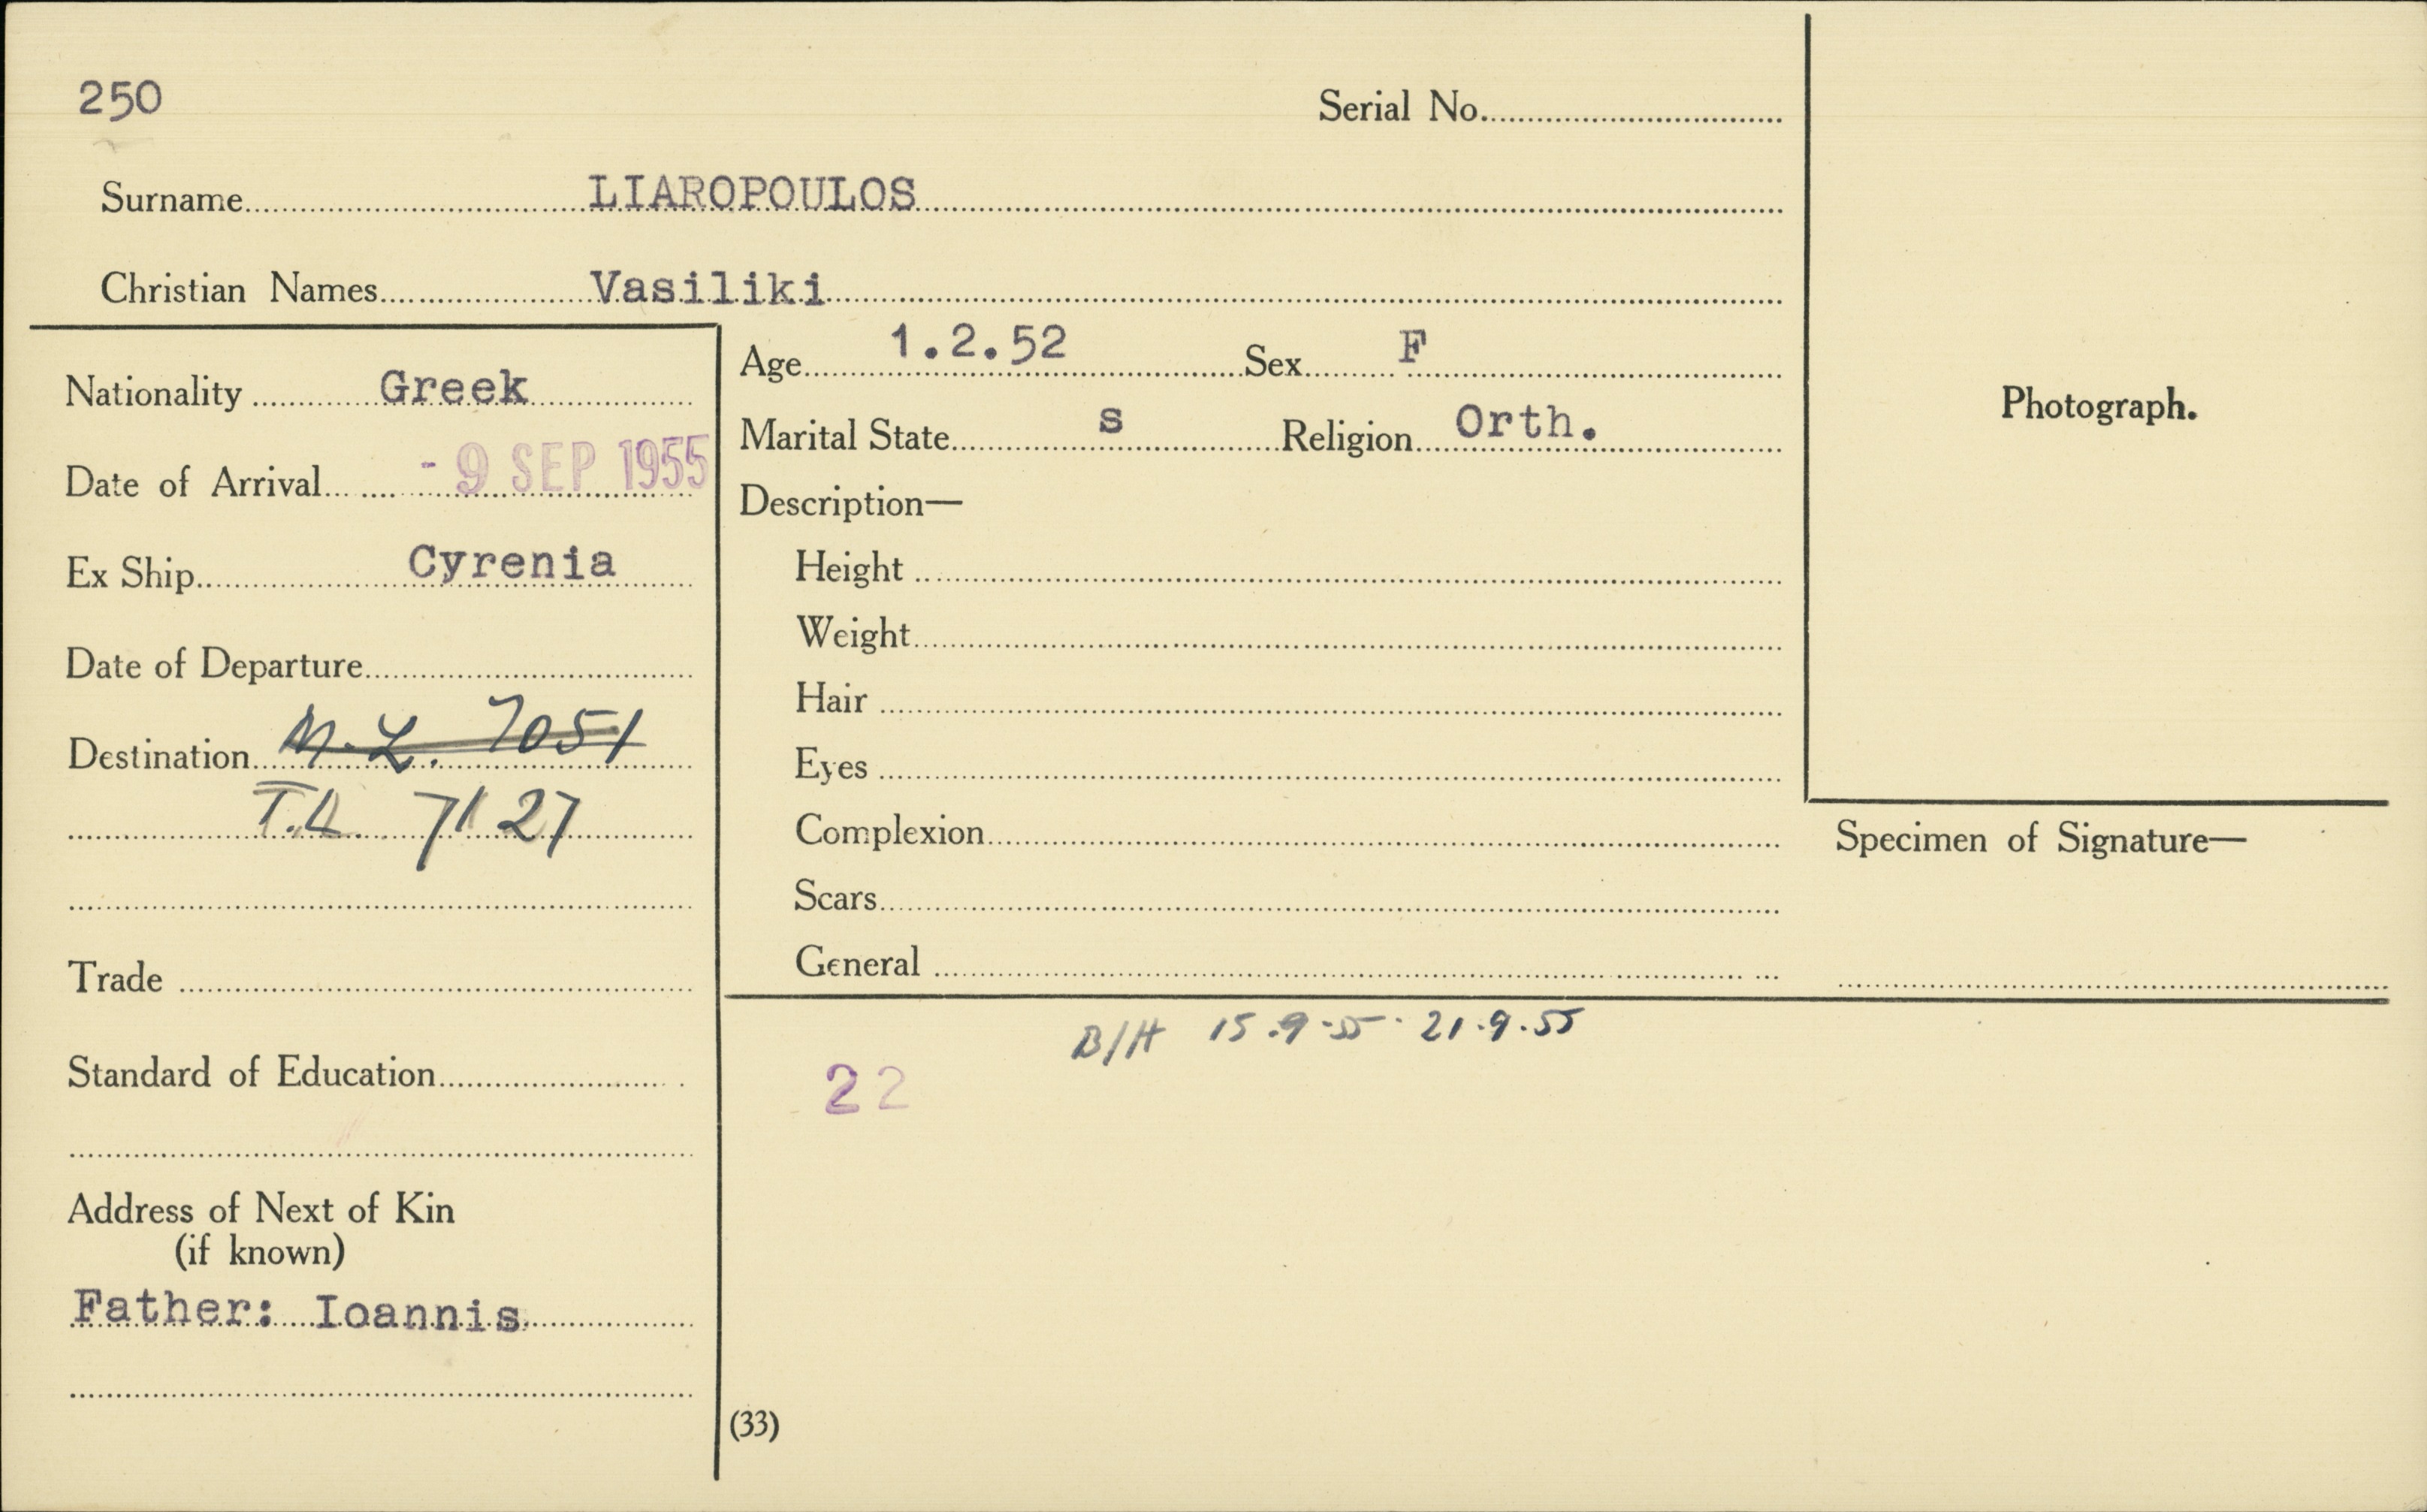 250
Serial No.
Surname LIAROPOULOS
Christian Names Vasiliki
Nationality Greek
Date of Arrival - 9 SEP 1955
Ex Ship Cyrenia
Date of Departure
Destination M.L. 7051
T.L. 7127
Trade
Standard of Education
Address of Next of Kin
(if known)
Father: Ioannis
Age 1.2.52 Sex F
Marital State s Religion Orth.
Description—
Height
Weight
Hair
Eyes
Complexion
Scars
General
Photograph.
Specimen of Signature—
B/H 15.9.55. 21.9.55
22
(33)